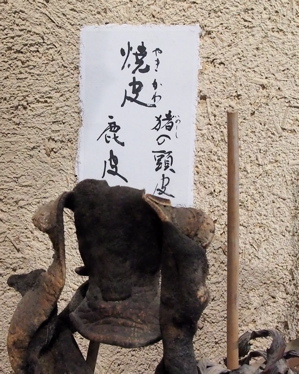 焼皮
やきかわ
猪の頭皮
いのしし
鹿皮